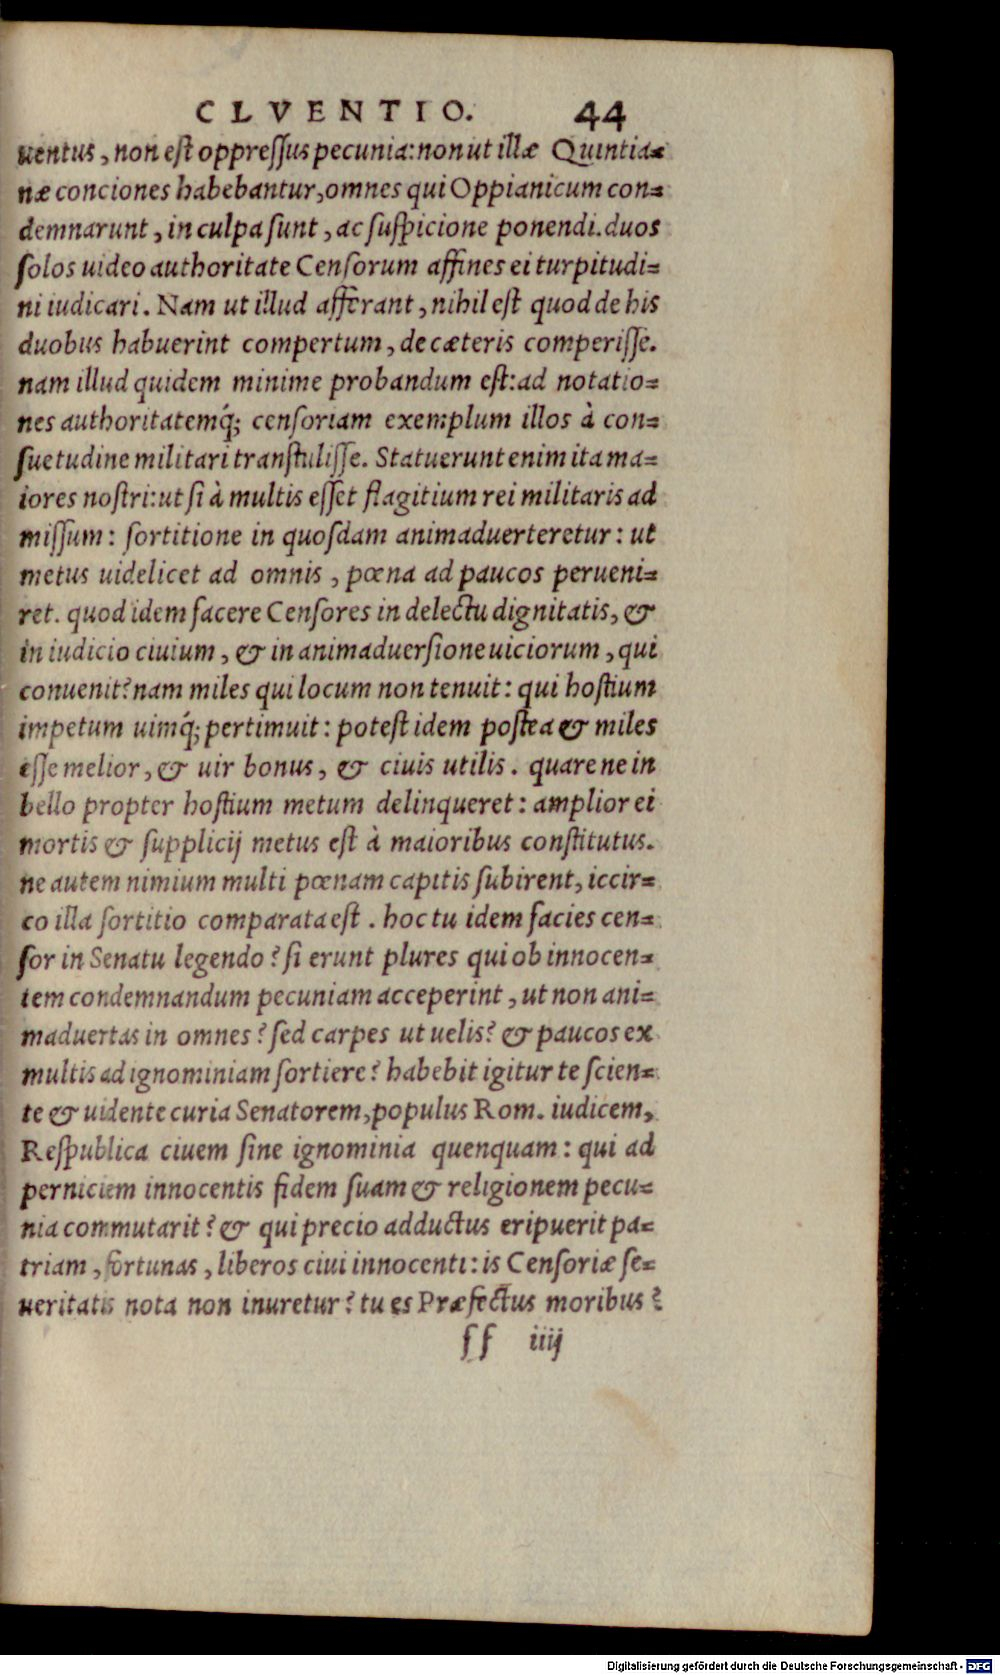 CLVENTIO. 44
uentus, non est oppressus pecunia: non ut illæ Quintia=
næ conciones habebantur, omnes qui Oppianicum con=
demnarunt, in culpa sunt, ac suspicione ponendi. duos
solos uideo authoritate Censorum affines ei turpitudi=
ni iudicari. Nam ut illud afferant, nihil est quod de his
duobus habuerint compertum, de cæteris comperisse.
nam illud quidem minime probandum est: ad notatio=
nes authoritatemq́; censoriam exemplum illos à con=
suetudine militari transtulisse. Statuerunt enim ita ma=
iores nostri: ut si à multis esset flagitium rei militaris ad
missum: sortitione in quosdam animaduerteretur: ut
metus uidelicet ad omnis, pœna ad paucos perueni=
ret. quod idem facere Censores in delectu dignitatis, &
in iudicio ciuium, & in animaduersione uiciorum, qui
conuenit? nam miles qui locum non tenuit: qui hostium
impetum uimq́; pertimuit: potest idem postea & miles
esse melior, & uir bonus, & ciuis utilis. quare ne in
bello propter hostium metum delinqueret: amplior ei
mortis & supplicij metus est à maioribus constitutus.
ne autem nimium multi pœnam capitis subirent, iccir=
co illa sortitio comparata est. hoc tu idem facies cen=
sor in Senatu legendo? si erunt plures qui ob innocen=
tem condemnandum pecuniam acceperint, ut non ani=
maduertas in omnes? sed carpes ut uelis? & paucos ex
multis ad ignominiam sortiere? habebit igitur te scien=
te & uidente curia Senatorem, populus Rom. iudicem,
Respublica ciuem sine ignominia quenquam: qui ad
perniciem innocentis fidem suam & religionem pecu=
nia commutarit? & qui precio adductus eripuerit pa=
triam, fortunas, liberos ciui innocenti: is Censoriæ se=
ueritatis nota non inuretur? tu es Præfectus moribus?
ff iiij
Digitalisierung gefördert durch die Deutsche Forschungsgemeinschaft - DFG